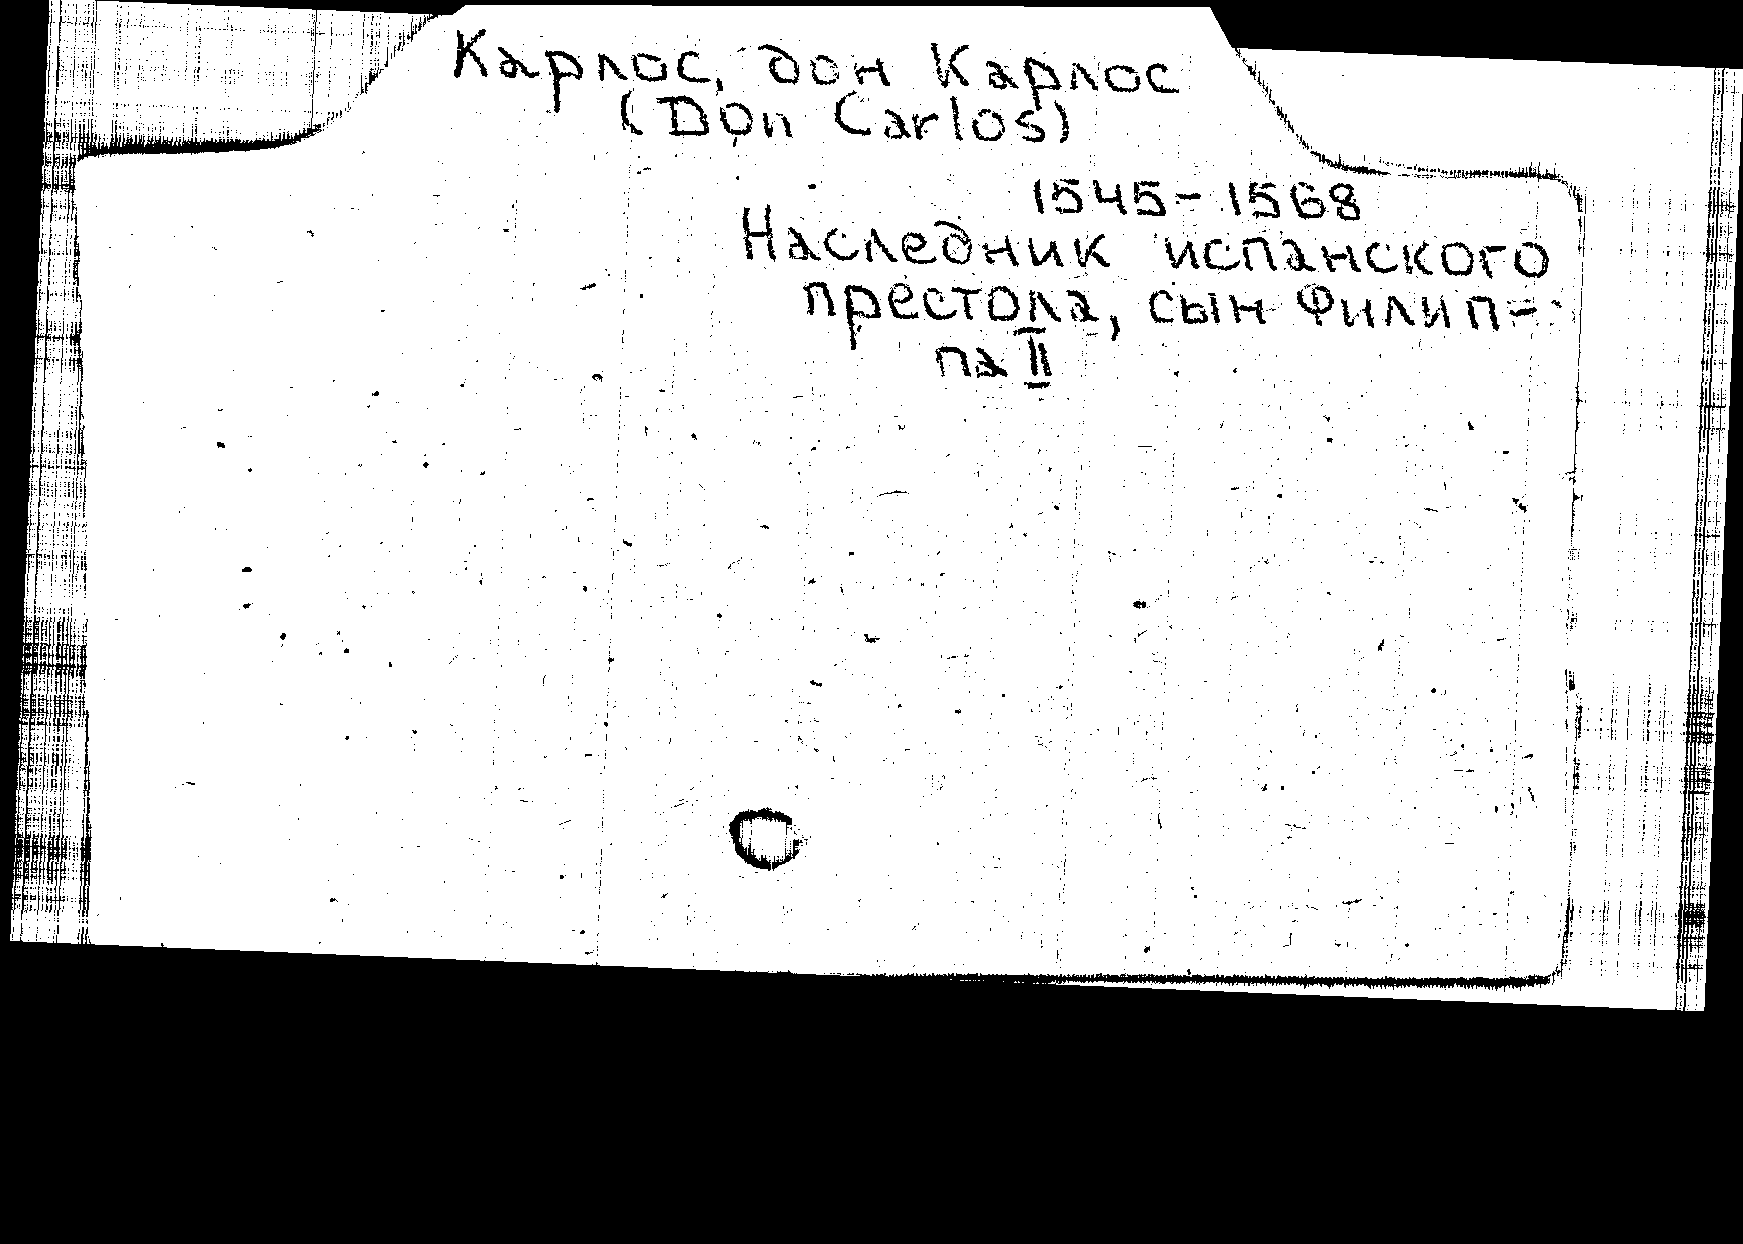 Карлос, дон Карлос
(Don Carlos)
1545-1568
Наследник испанского
престола, сын Филип-
па II